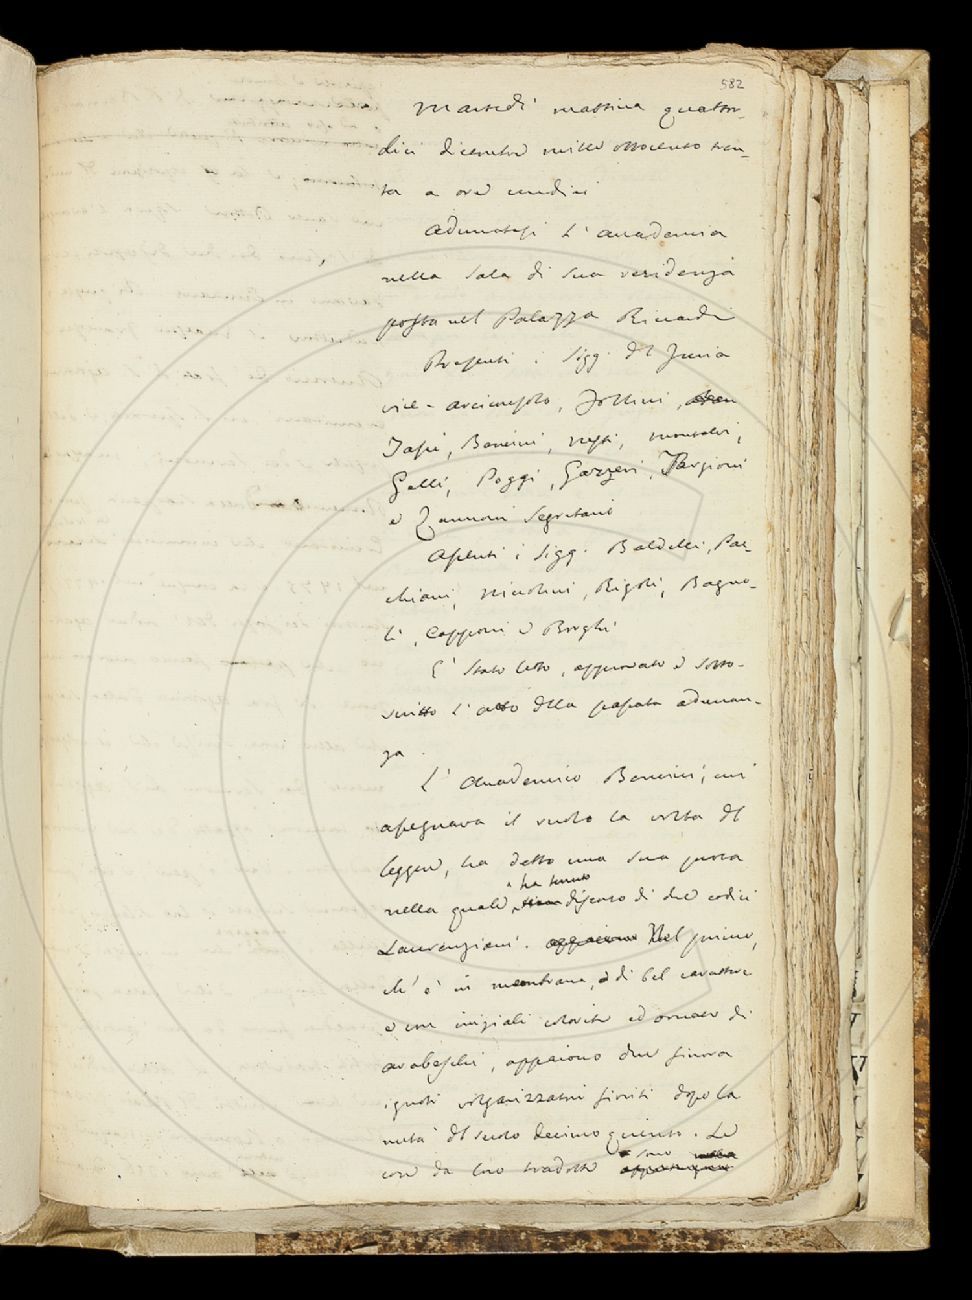 582
Martedì mattina quattor-
dici dicembre mille ottocento tren-
ta a ore undici
Adunatasi l'Accademia
nella sala di sua residenza
posta nel Palazzo Riccardi
Presenti i Sigg. Del Furia
vice-arciconsolo, Follini,
Sassi, Bencini, Nesti,
Gelli, Poggi, Gazzeri, Targioni
e Zannoni Segretario
Assenti i Sigg. Baldelli, Pac-
chiani, Niccolini, Rigoli, Bagno-
li, Capponi e Borghi
È stato letto, approvato e sotto-
scritto l'atto della passata adunan-
za.
L'Accademico Bencini, cui
assegnava il ruolo la volta del
leggere, ha detto una sua prosa
ha tenuto
nella quale discorso di due codici
Laurenziani. appaiono Nel primo,
ch'è in membrana, e di bel carattere
e con iniziali colorite ed ornate di
arabeschi, appaiono due finora
ignoti volgarizzatori fioriti dopo la
metà del secolo decimoquinto. Le
sono
cose da loro tradotte